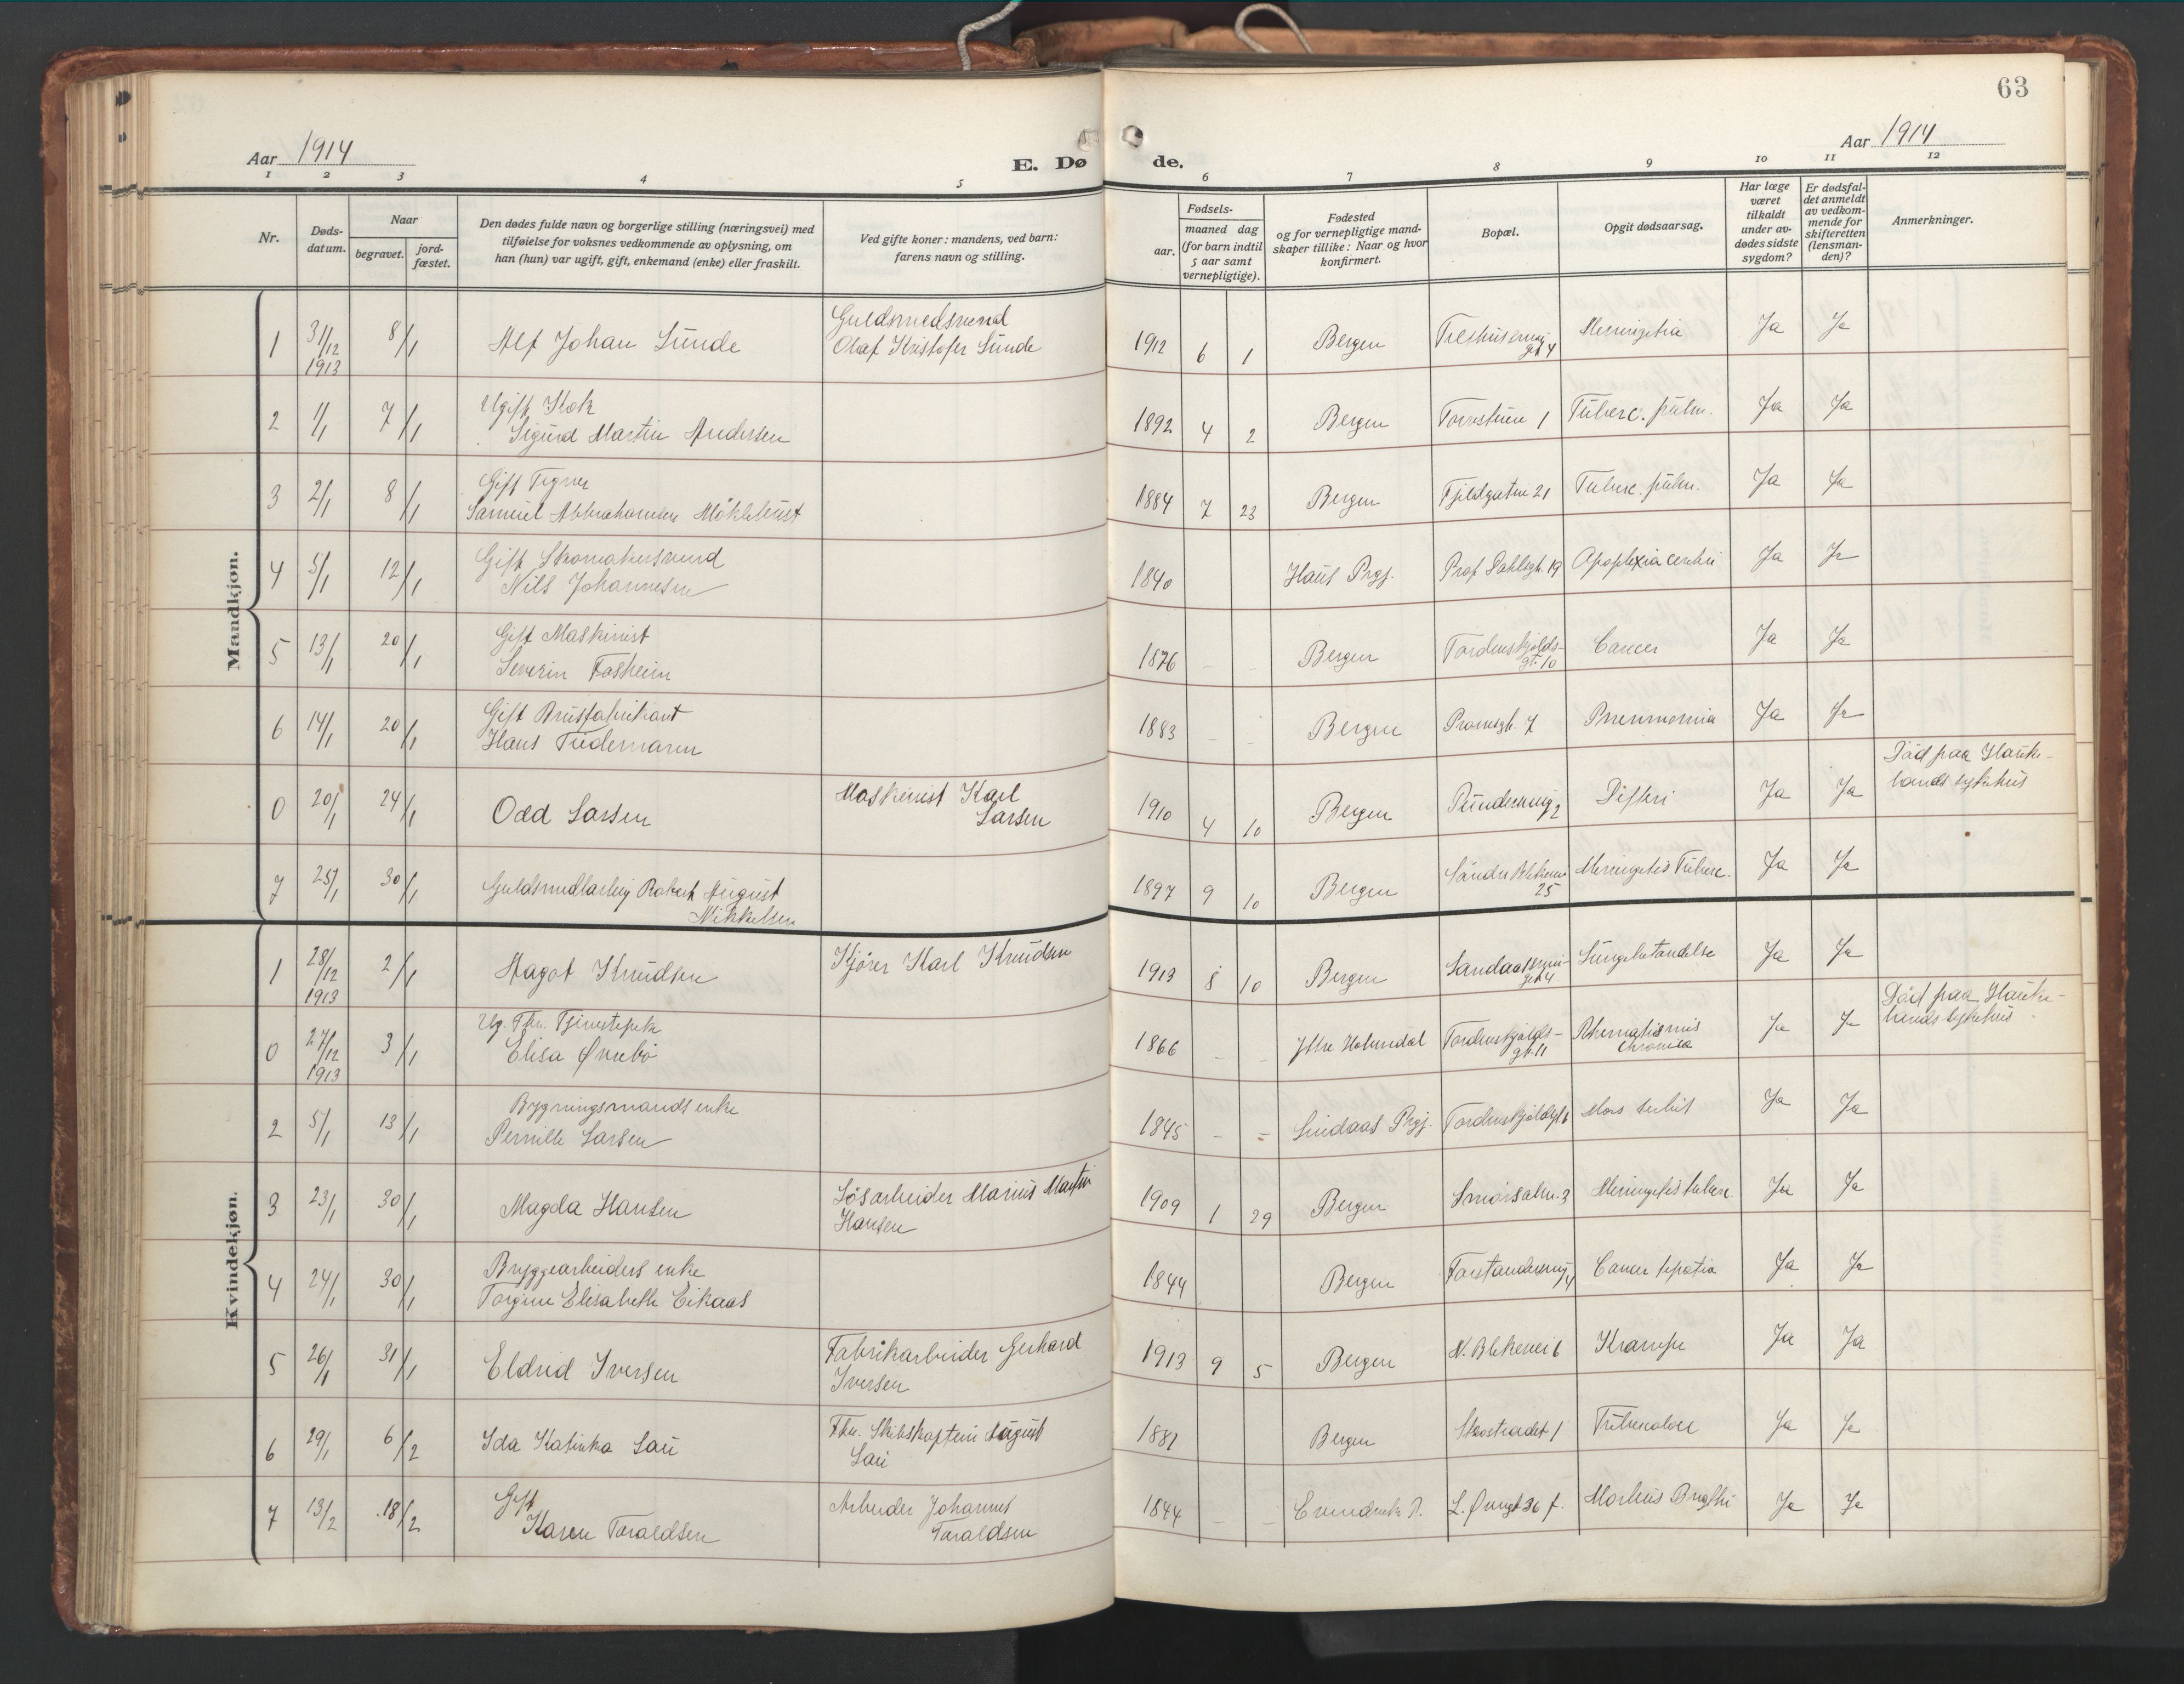 63
Aar 1914
E. Dø de.
Aar 1914
1 2 3 4 5 6 7 8 9 10 11 12
Nr.
Døds-
datum.
Naar
begravet.
jord-
fæstet.
Den dødes fulde navn og borgerlige stilling (næringsvei) med
tilføielse for voksnes vedkommende av oplysning, om
han (hun) var ugift, gift, enkemand (enke) eller fraskilt.
Ved gifte koner: mandens, ved barn:
farens navn og stilling.
Fødsels-
aar.
maaned dag
(for barn indtil
5 aar samt
vernepligtige).
Fødested
og for vernepligtige mand-
skaper tillike: Naar og hvor
konfirmert.
Bopæl.
Opgit dødsaarsag.
Har læge
været
tilkaldt
under av-
dødes sidste
sygdom?
Er dødsfal-
det anmeldt
av vedkom-
mende for
skifteretten
(lensman-
den)?
Anmerkninger.
Mandkjøn.
1 31/12 1913 8/1 Alf Johan Sunde
Guldsmedsvend
Olaf Kristofer Sunde
1912 6 1 Bergen Ja Ja
2 1/1 7/1 Ugift Kok
Sigurd Martin Andersen
1892 4 2 Bergen 1 Tuberc. pulm. Ja Ja
3 2/1 8/1 Gift Tegner
Samuel Abbrahamsen Møklebust
1884 7 23 Bergen Fjeldgaten 21 Tuberc. pulm. Ja Ja
4 5/1 12/1 Gift Skomakersvend
Nils Johannesen
1840 Haus Prgj. Prof Dahlsgt. 19 Apoplexia cerebri Ja Ja
5 13/1 20/1 Gift Maskinist
Severin Fosheim
1876 - - Bergen Tordenskjolds-
gt. 10 Cancer Ja Ja
6 14/1 20/1 Gift Brusfabrikant
Hans Tiedemann
1883 - - Bergen 7 Pneumonia Ja Ja
0 20/1 24/1 Odd Larsen
Maskinist Karl
Larsen
1910 4 10 Bergen 2 Difteri Ja Ja
Død paa Hauke-
lands sykehus
7 25/1 30/1 Guldsmedlærling Robert August
Mikkelsen
1897 9 10 Bergen Søndre Blekevei
25 Meningitis Tuberc. Ja Ja
Kvindekjøn.
1 28/12 1913 2/1 Hagot Knudsen
Kjører Karl Knudsen
1913 8 10 Bergen Lungebetændelse Ja Ja
0 27/12 1913 3/1 Ug. Fhv. Tjenestepike
Elisa Ørrebø
1866 - - Ytre Holmedal Tordenskjolds-
gt. 11 Rhematismis
chronica Ja Ja
Død paa Hauke-
lands sykehus
2 5/1 13/1 Bygningsmands enke
Pernille Larsen
1845 - - Lindaas Prgj. Tordenskjoldsgt. 6 Mors subit Ja Ja
3 23/1 30/1 Magda Hansen
Løsarbeider Marius Martin
Hansen
1909 1 29 Bergen Smørsalm. 3 Meningitis tuberc. Ja Ja
4 24/1 30/1 Bryggearbeiders enke
Torgine Elisabeth Eikaas
1844 Bergen Forstandersmug
4 Cancer hepatis Ja Ja
5 26/1 31/1 Eldrid Iversen
Fabrikarbeider Gerhard
Iversen
1913 9 5 Bergen N. Blekevei 6 Krampe Ja Ja
6 29/1 6/2 Ida Katinka Lau
Fhv. Skibskaptein August
Lau
1882 Bergen Skostrædet 1 Tuberculose Ja Ja
7 13/2 18/2 Gift
Karen Toraldsen
Arbeider Johannes
Toraldsen
1844 - - Morbus Brigthi Ja Ja